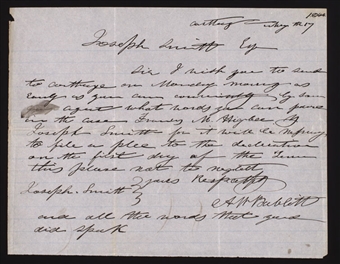 Carthage May the 17
Joseph Smith Esq
Sir I wish you to send
to Carthage on Monday morning as
early as you can conveniently by som
agent what words you can prove
in the case Francis M. Higbee vs
Joseph Smith for it will be necessary
to file a plee to the decleration
on the first day of the Term
this please not to neglect
yours Respectfully
Joseph Smith
and all the words that you
did speak